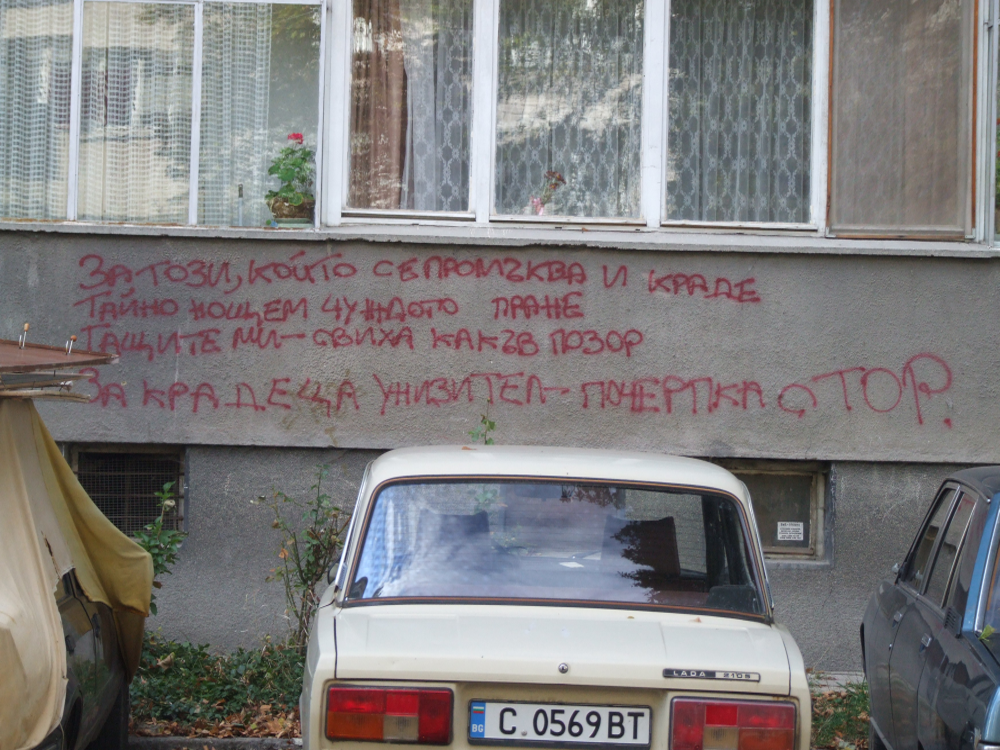 ЗА ТОЗИ, КОЙТО СЕ ПРОМЪКВА И КРАДЕ
ТАЙНО НОЩЕМ ЧУЖДОТО ПРАНЕ
ГАЩИТЕ МИ СВИХА КАКЪВ ПОЗОР
ЗА КРАДЕЦА УНИЗИТЕЛ- ПОЧЕРПКА С ТОР.
LADA 2105
BG C 0569 BT